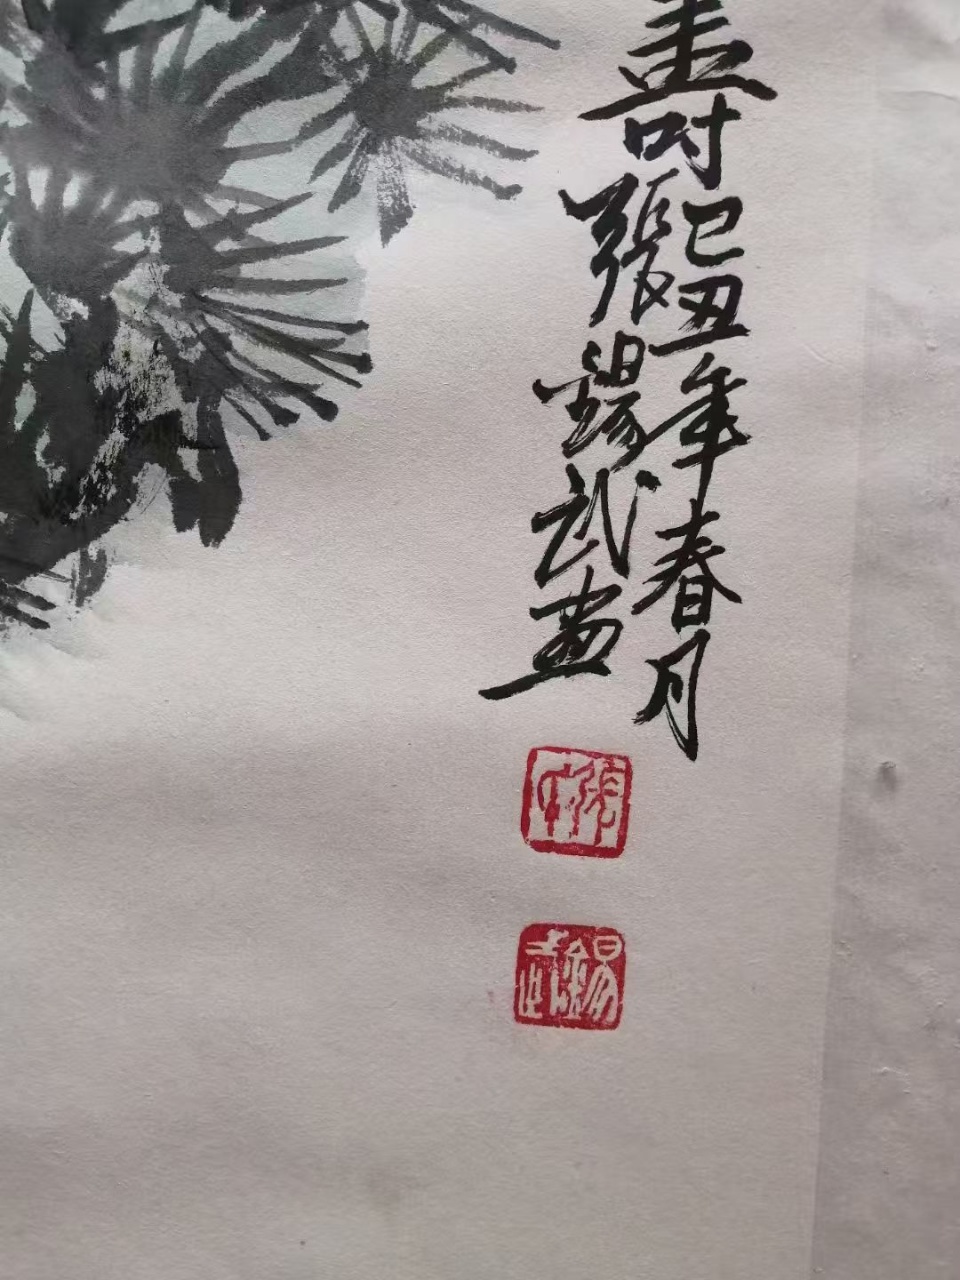 壽己丑年春月
張錫武畫
張
錫武